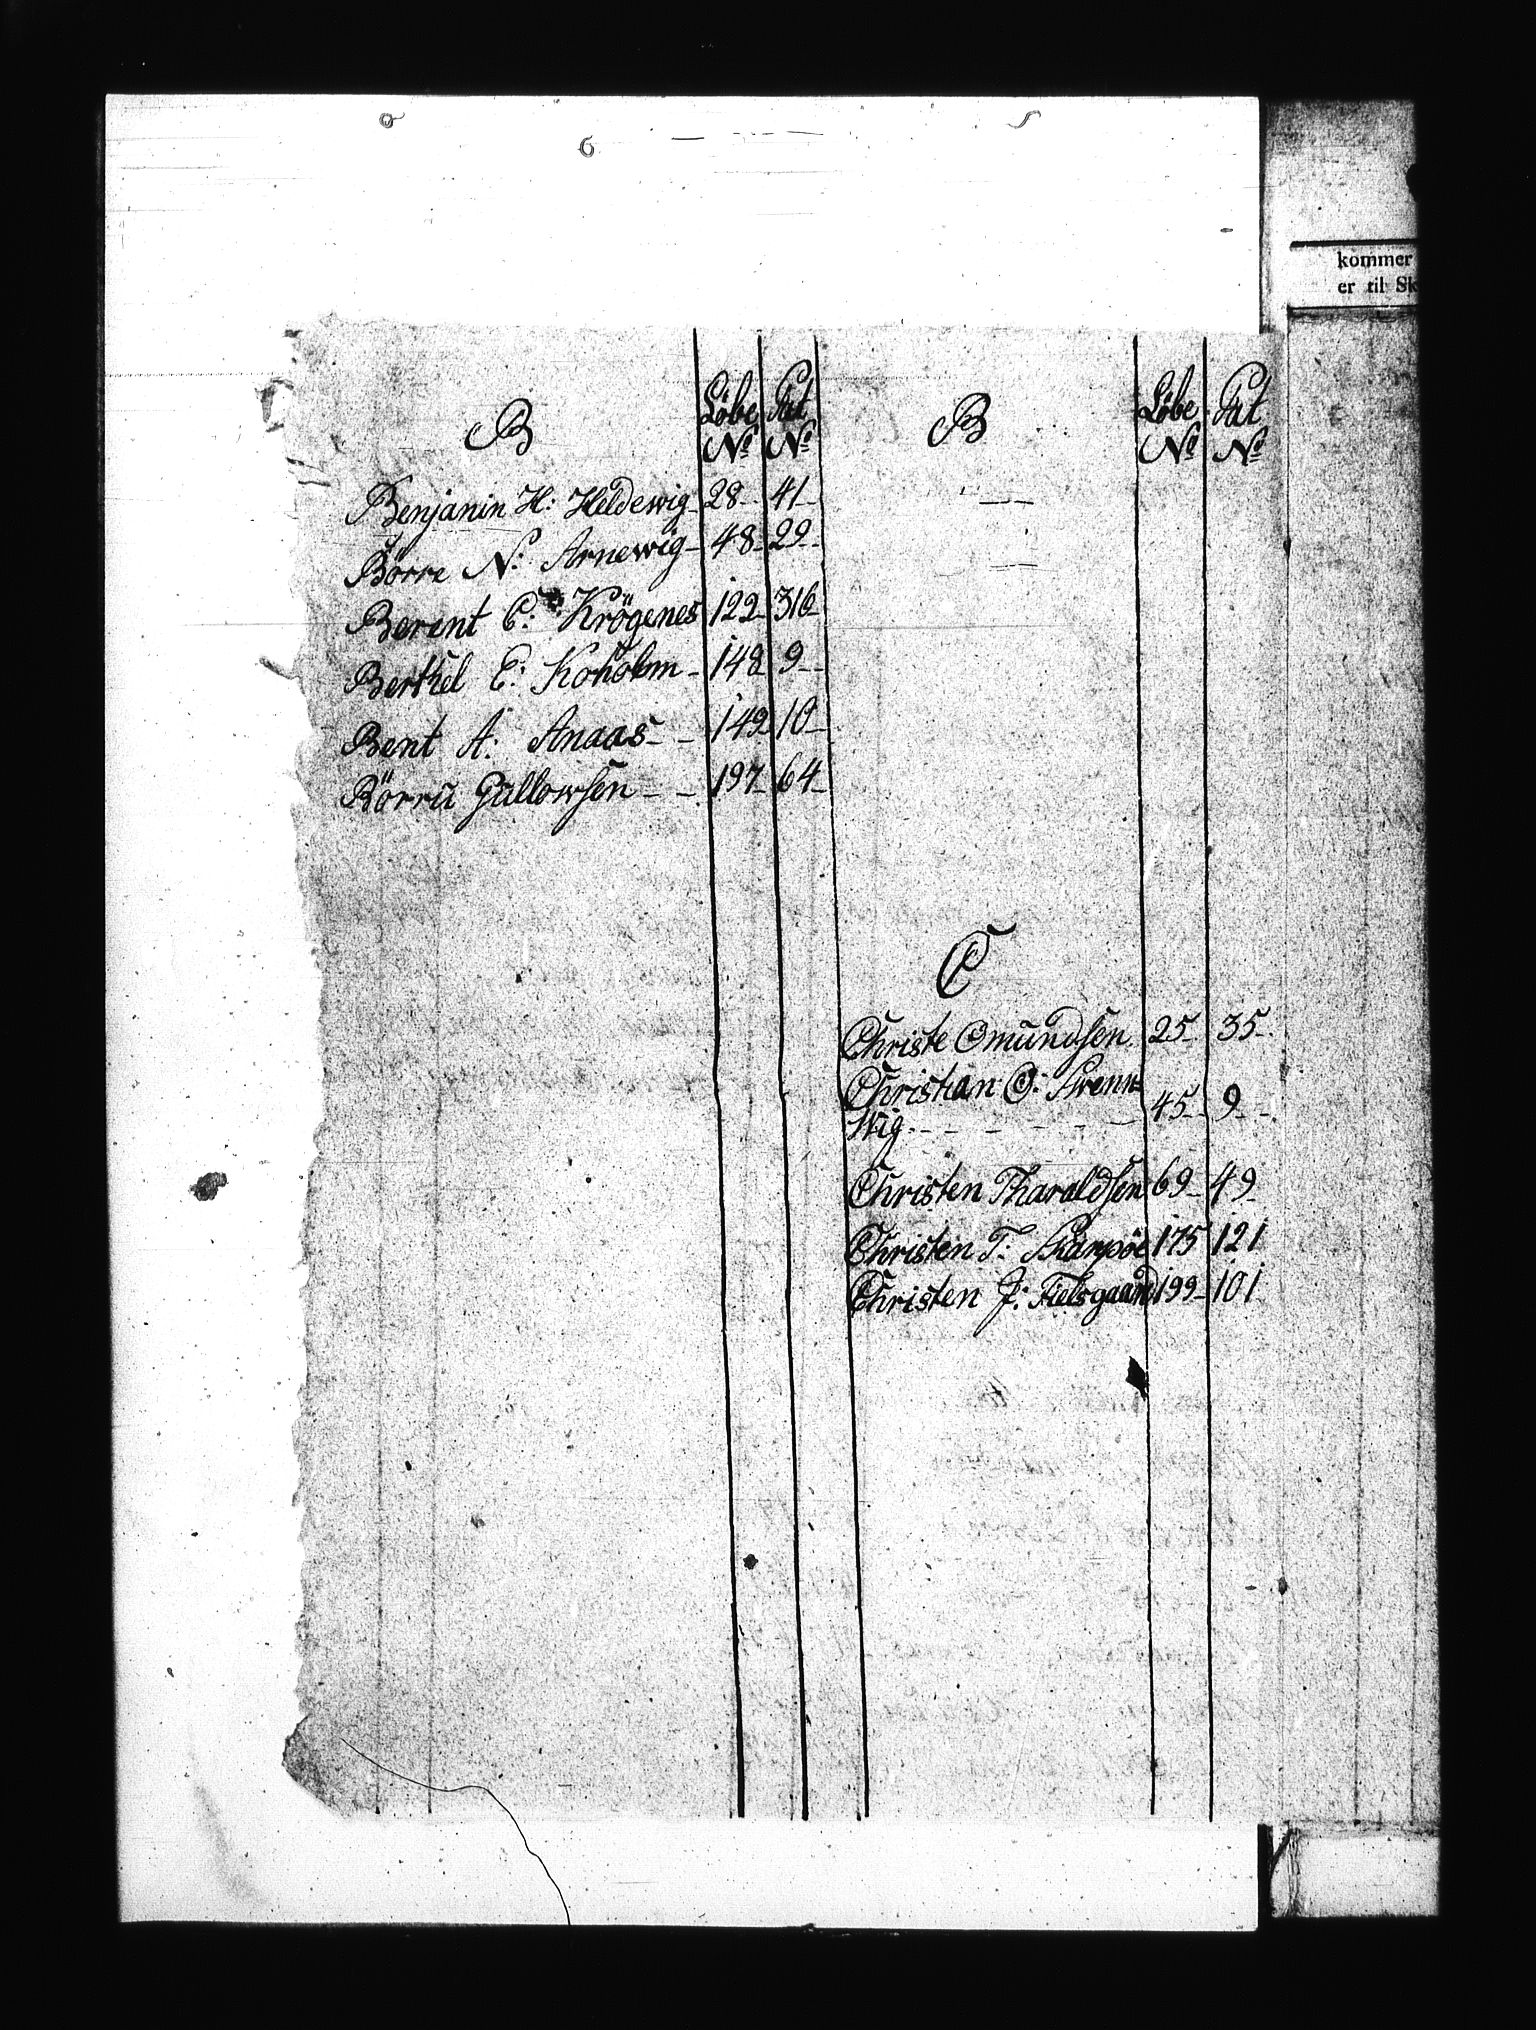 B Löbe No Pat No
Benjanin H: Heldewig 28 41
Börre N: Arnewig 48 29
Berent C: Krögenes 122 316
Berthel E: Koholm 148 9
Bent A: Anaas 149 10
Börru Gullowsen 197 64
B Löbe No Pat No
C
Christe Omundsen 25 35
Christian O: Swenn=
Wig 45 9
Christen Tharaldsen 69 49
Christen T: 175 121
Christen J: 199 101
kommer
er til Sk